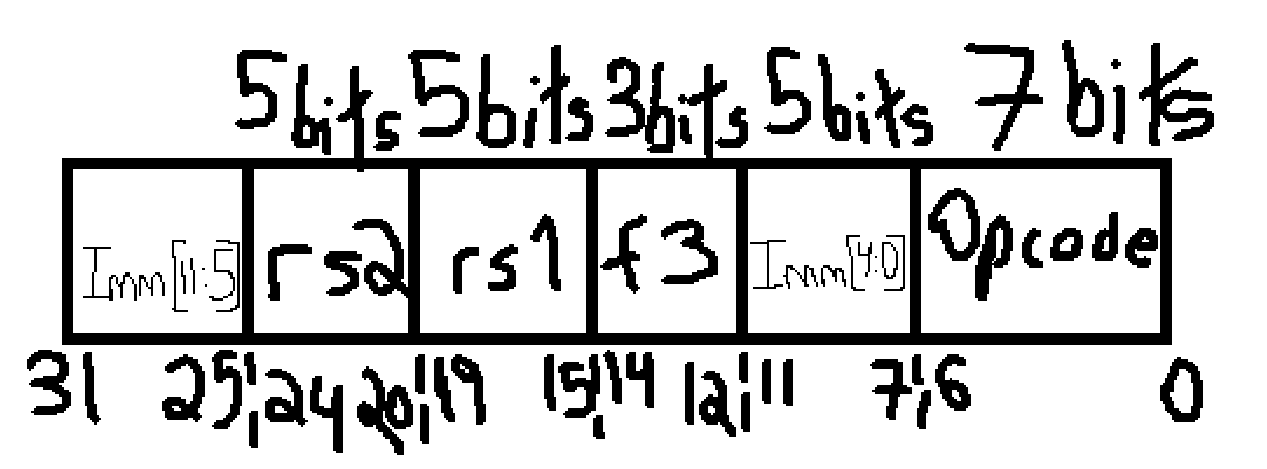 5bits 5bits 3bits 5bits 7bits
Imm[11:5] rs2 rs1 f3 Imm[4:0] Opcode
31 25 24 20 19 15 14 12 11 7 6 0